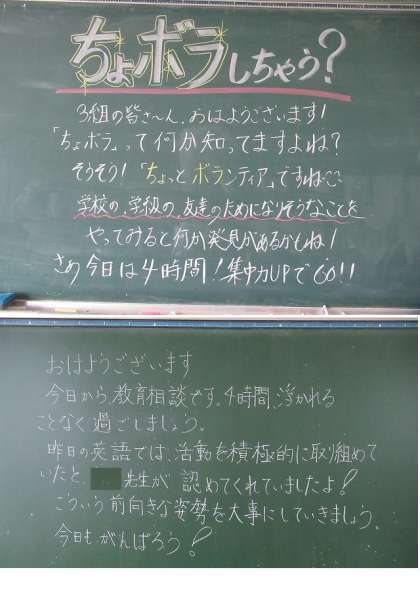 ちょボラしちゃう?
3組の皆さ〜ん、おはようございます!
「ちょボラ」って何か知ってますよね?
そうそう!「ちょっとボランティア」ですね
学校の、学級の、友達のためになりそうなことを
やってみると何か発見があるかもね!
さぁ今日は4時間!集中力UPでGO!!
おはようございます
今日から、教育相談です。4時間、浮かれる
ことなく過ごしましょう。
昨日の英語では、活動を積極的に取り組めて
いたと、先生が認めてくれていましたよ!
こういう前向きな姿勢を大事にしていきましょう。
今日もがんばろう!